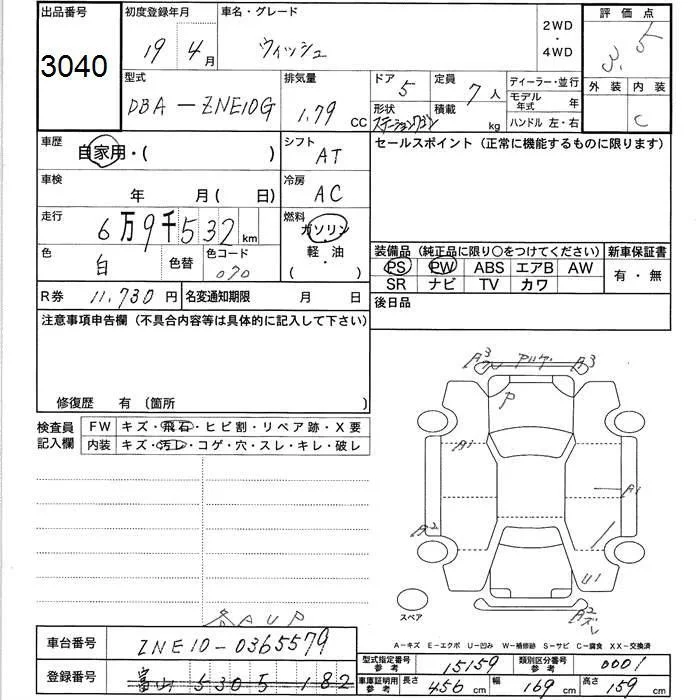 出品番号 初度登録年月 車名・グレード 2WD・4WD 評価点
3040 19年 4月 ウィッシュ 3.5
型式 排気量 ドア 5 定員 7人 ディーラー・並行 外装 内装
DBA-ZNE10G 1.79 CC 形状 ステーションワゴン 積載 kg モデル年式 年 C
ハンドル 左・右
車歴 自家用・( ) シフト AT セールスポイント (正常に機能するものに限ります)
車検 年 月 ( 日) 冷房 AC
走行 6万9千532km 燃料 ガソリン
色 白 色替 色コード 070 軽・油 ( ・ )
装備品 (純正品に限り○をつけてください) 新車保証書
PS PW ABS エアB AW 有・無
SR ナビ TV カワ
R券 11,730円 名変通知期限 月 日 後日品
注意事項申告欄 (不具合内容等は具体的に記入して下さい)
修復歴 有 (箇所 )
検査員記入欄 FW キズ・飛石・ヒビ割・リペア跡・X要
内装 キズ・汚レ・コゲ・穴・スレ・キレ・破レ
A3 A3
P
A1
A1
A2
U1
A2
スペア
AUP
A-キズ E-エクボ U-凹み W-補修跡 S-サビ C-腐食 XX-交換済
車台番号 ZNE10-0365579
型式指定番号参考 15159 類別区分番号参考 0001
登録番号 富山 530 5 182
車庫証明用参考 長さ 456cm 幅 169cm 高さ 159cm